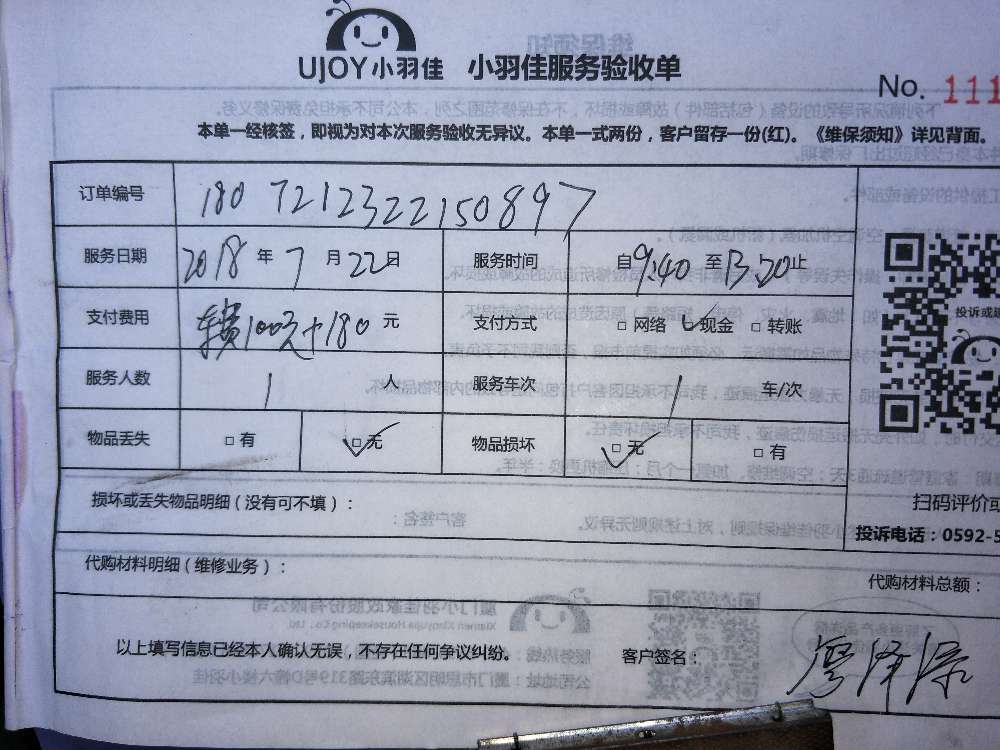 UJOY小羽佳 小羽佳服务验收单
No. 111
本单一经核签，即视为对本次服务验收无异议。本单一式两份，客户留存一份(红)。《维保须知》详见背面。
订单编号 1807212322150897
服务日期 2018年7月22日 服务时间 自9:40至13:20止
支付费用 车费100元+180元 支付方式 □网络 ✓现金 □转账
服务人数 1人 服务车次 1车/次
物品丢失 □有 ☑无 物品损坏 ☑无 □有
投诉或建
损坏或丢失物品明细（没有可不填）：
扫码评价或
投诉电话：0592-5
代购材料明细（维修业务）：
代购材料总额：
以上填写信息已经本人确认无误，不存在任何争议纠纷。 客户签名：